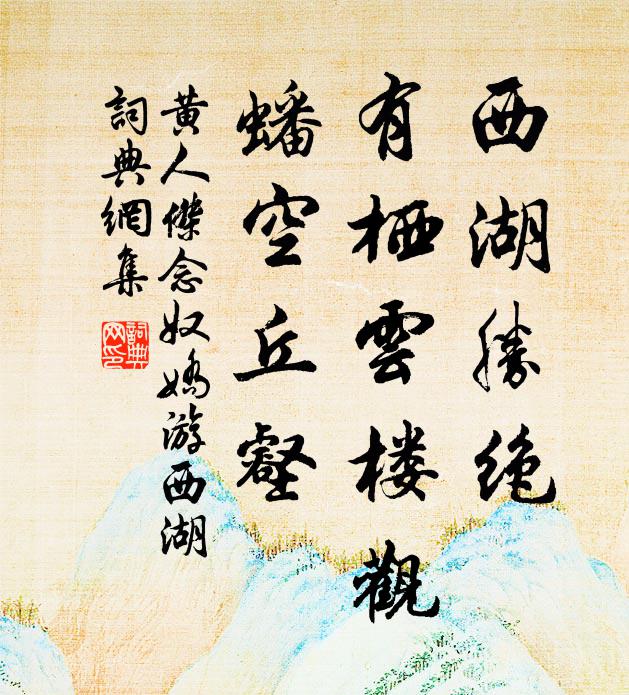 西湖勝絶
有栖雲楼觀
蟠空丘壑
黄人傑念奴嬌游西湖
詞典網集
詞典
网印